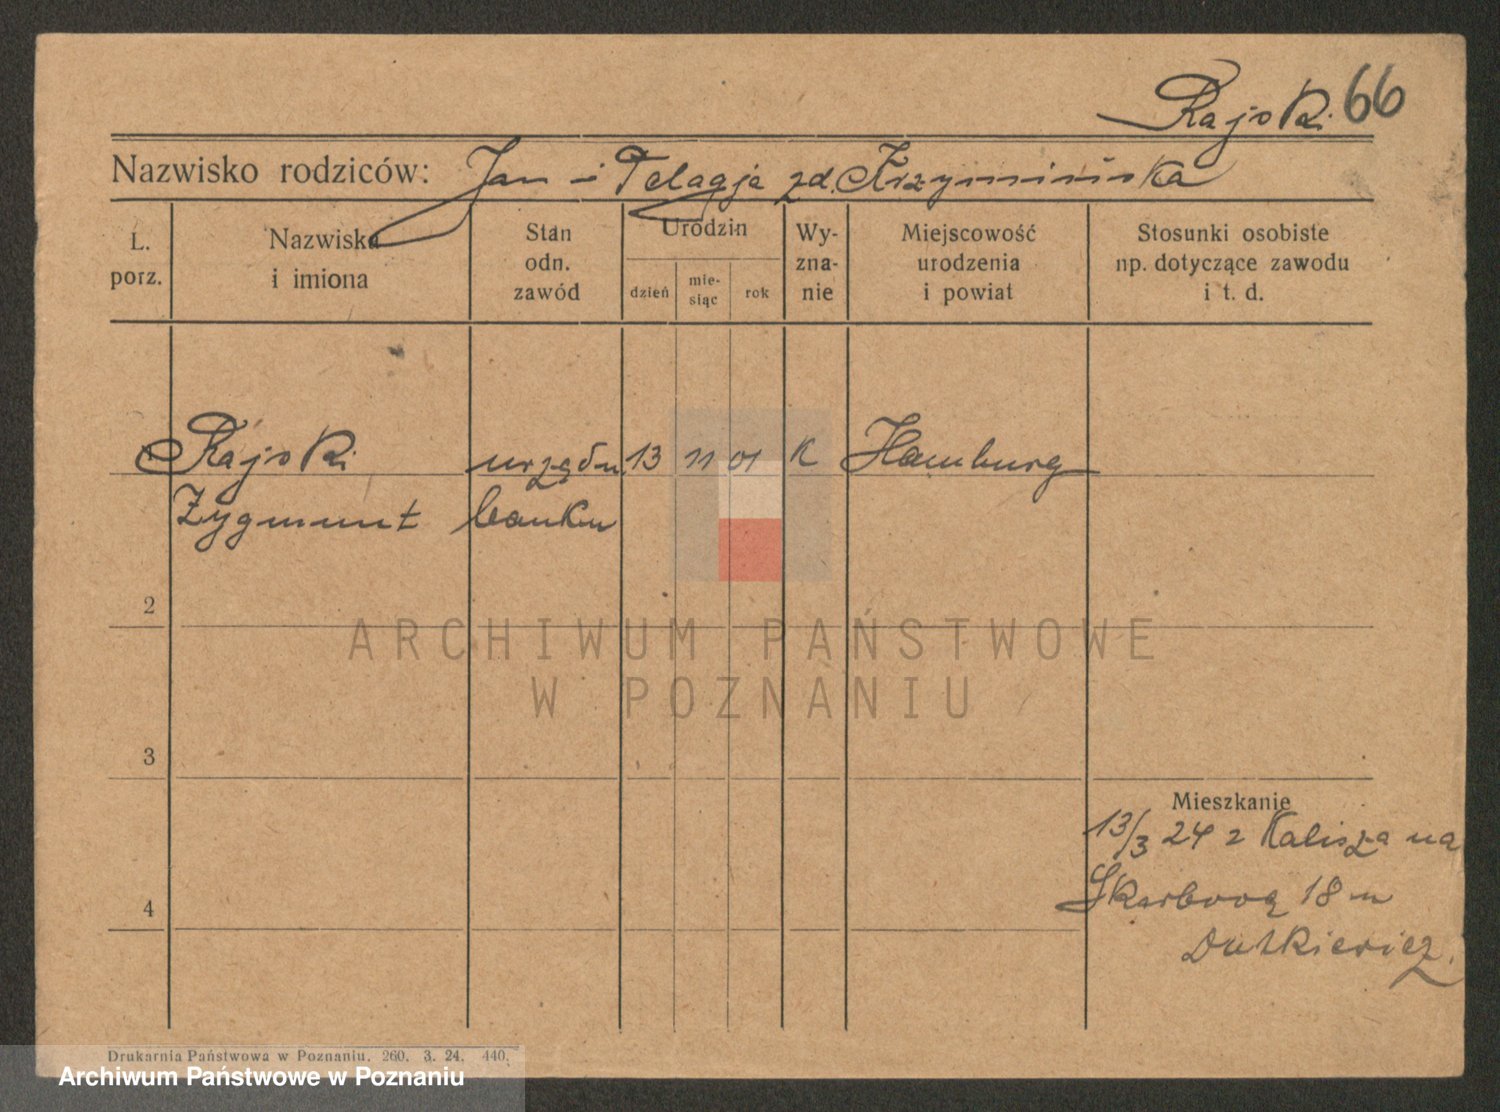 Rajski 66
Nazwisko rodziców: Jan i Pelagja zd. Krzymińska
L. porz.
Nazwiska i imiona
Stan odn. zawód
Urodzin
dzień
mie-siąc
rok
Wy-zna-nie
Miejscowość urodzenia i powiat
Stosunki osobiste np. dotyczące zawodu i t. d.
1 Rajski urzędn 13 11 01 K Hamburg
Zygmunt banku
2
ARCHIWUM PAŃSTWOWE
W POZNANIU
3
Mieszkanie
13/3 24 z Kalisza na
Skarbową 18 u
Dutkiewicz.
4
Drukarnia Państwowa w Poznaniu. 260. 3. 24. 440.
Archiwum Państwowe w Poznaniu